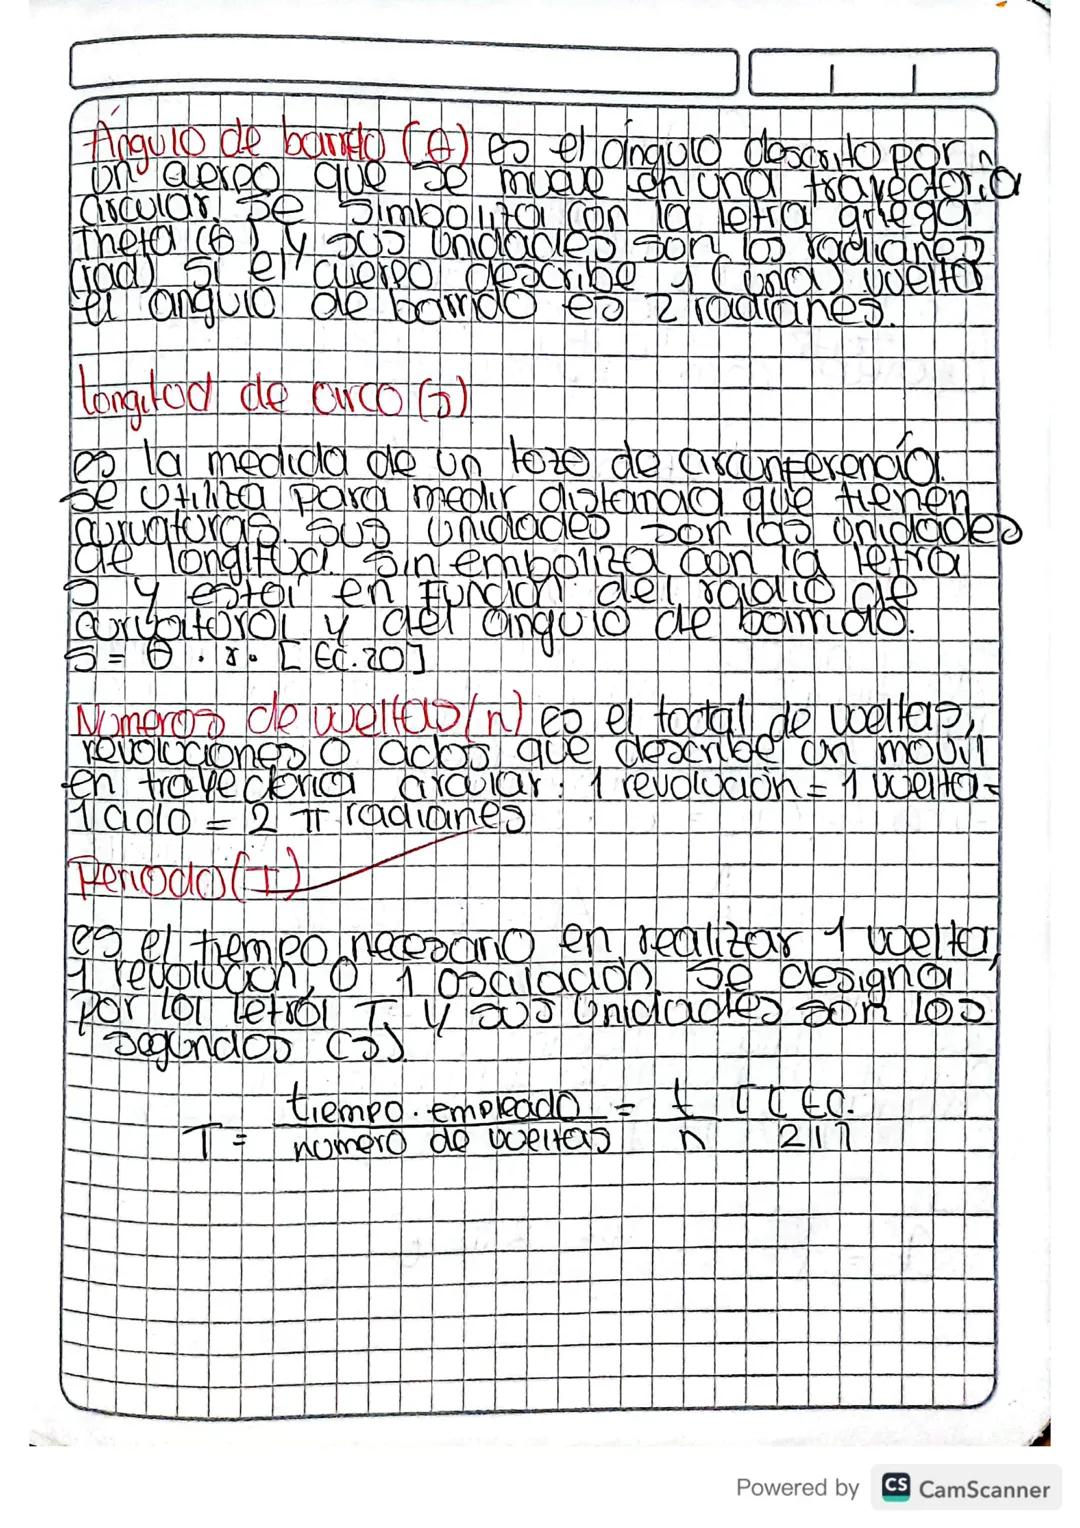 Ángulo de barrido (θ) es el ángulo descrito por
un cuerpo que se mueve en una trayectoria
circular. Se simboliza con la letra griega
theta (θ) y sus unidades son los radianes
(rad) si el cuerpo describe 1 (una) vuelta
el angulo de barrido es 2 radianes.
Longitud de arco (s)
es la medida de un tozo de circunferencia.
se utiliza para medir distancia que tienen
curvaturas. sus unidades son las unidades
de longitud. Sin emboliza con la letra
s y está en función del radio de
curvatura y del ángulo de barrido.
s = θ . r. [Ec. 20]
Numeros de vueltas (n) es el toctal de vueltas,
revoluciones o ciclos que describe un movil
en trayectoria circular: 1 revolución = 1 vuelta=
1 ciclo = 2 π radianes
Periodo (T)
es el tiempo necesario en realizar 1 vuelta,
1 revolución, o 1 oscilación. Se designa
por la letra T y sus unidades son los
segundos (s).
T = tiempo . empleado / numero de vueltas = t / n [[Ec. 21]
Powered by CS CamScanner